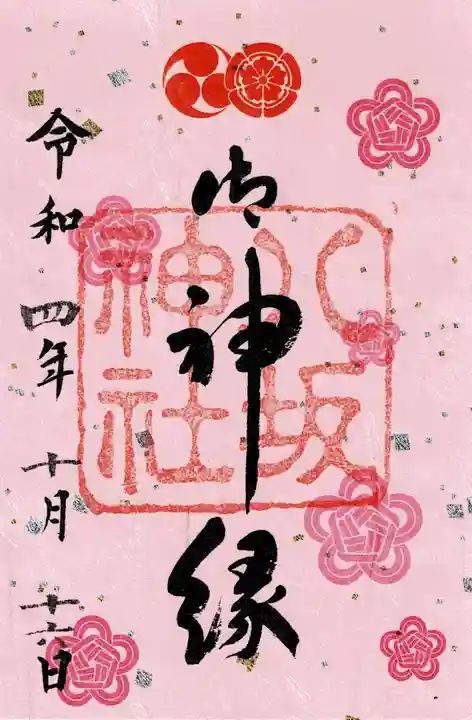 御神縁
八坂
神社
令和四年十月十六日